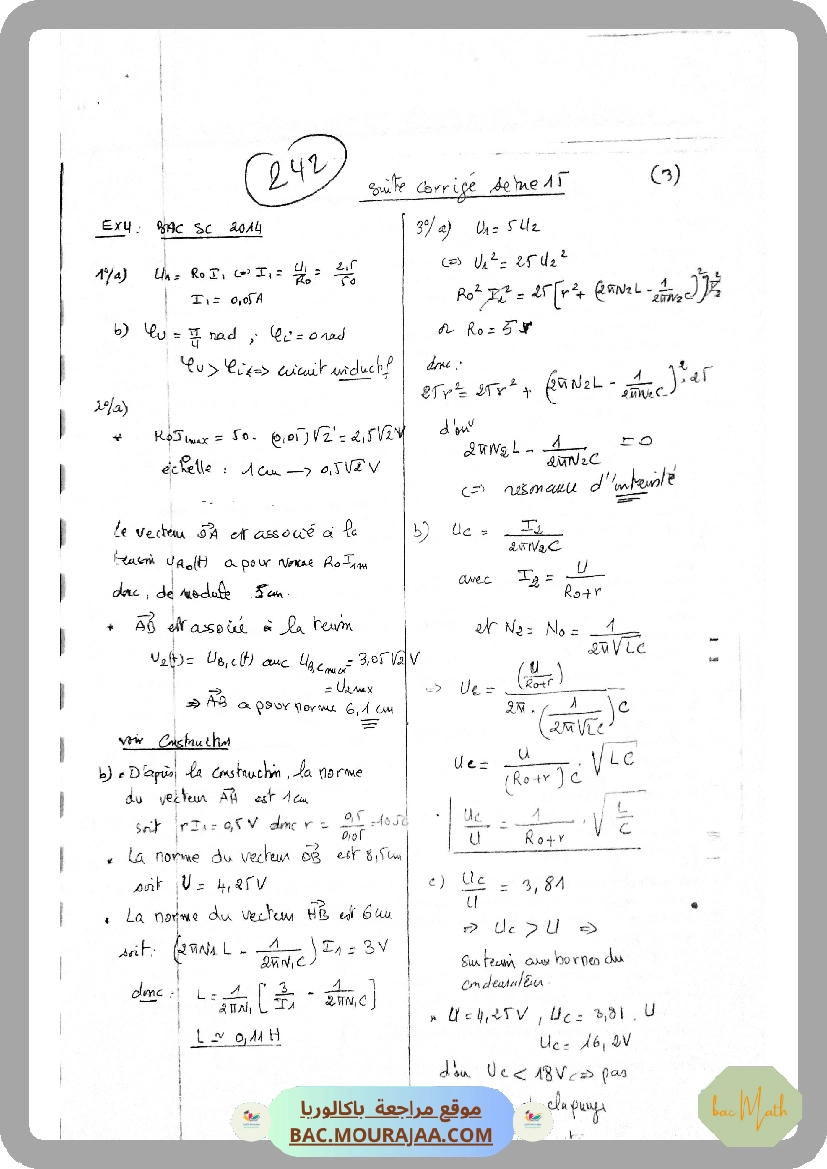 242
suite corrigé serie 15 (3)
Ex4: BAC SC 2014
1°/a) U₁ = R₀ I₁ ⇔ I₁ = U₁/R₀ = 2,5/50
I₁ = 0,05A
b) φu = π/4 rad ; φi = 0 rad
φu > φi ⇔ circuit inductif
2°/a)
* R₀I₁max = 50 . (0,05)√2 = 2,5√2 V
échelle : 1 cm → 0,5√2 V
Le vecteur OA est associé à la
tension uR₀(t) a pour norme R₀I₁m
donc, de module 5cm.
* AB est associé à la tension
u₂(t) = uB,C(t) avec UB,Cmax = 3,05√2 V
= U₂max
⇒ AB a pour norme 6,1 cm
voir Construction
b) • D'après la construction, la norme
du vecteur AH est 1cm
soit rI₁ = 0,5 V donc r = 0,5/0,05 = 10 Ω
• La norme du vecteur OB est 8,5cm
soit U = 4,25V
• La norme du vecteur HB est 6cm
soit: (2πN₁L - 1/2πN₁C) I₁ = 3V
donc: L = 1/2πN₁ [3/I₁ - 1/2πN₁C]
L ≃ 0,11H
3°/a) U₁ = 5U₂
⇔ U₁² = 25U₂²
R₀² I₂² = 25[r² + (2πN₂L - 1/2πN₂C)²]I₂²
or R₀ = 5r
donc:
25r² = 25r² + (2πN₂L - 1/2πN₂C)².25
d'où
2πN₂L - 1/2πN₂C = 0
⇔ résonance d'intensité
b) Uc = I₂/2πN₂C
avec I₂ = U/R₀+r
et N₂ = N₀ = 1/2π√LC
⇒ Uc = (U/R₀+r)/2π.(1/2π√LC)C
Uc = U/(R₀+r)C . √LC
Uc/U = 1/R₀+r . √L/C
c) Uc/U = 3,81
⇒ Uc > U ⇒
surtension aux bornes du
condensateur.
* U = 4,25V, Uc = 3,81 . U
Uc = 16,2V
d'où Uc < 18V ⇔ pas
claquage
موقع مراجعة باكالوريا
BAC.MOURAJAA.COM
bac Math